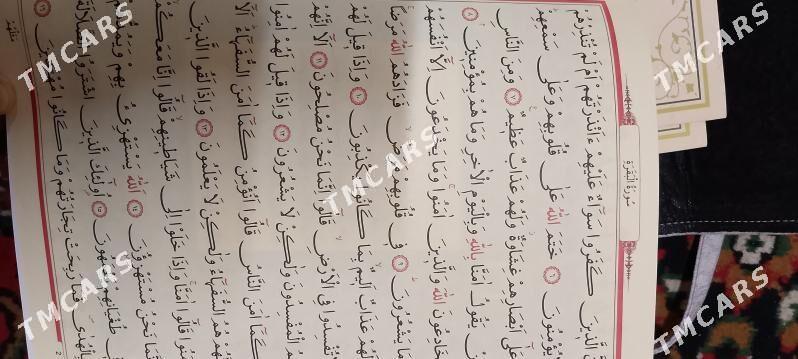 سُورَةُ الْبَقَرَةِ
الَّذِينَ كَفَرُوا سَوَاءٌ عَلَيْهِمْ ءَاَنْذَرْتَهُمْ اَمْ لَمْ تُنْذِرْهُمْ
يُؤْمِنُونَ ٦ خَتَمَ اللّٰهُ عَلٰى قُلُوبِهِمْ وَعَلٰى سَمْعِهِمْ
عَلٰى اَبْصَارِهِمْ غِشَاوَةٌ وَلَهُمْ عَذَابٌ عَظِيمٌ ٧ وَمِنَ النَّاسِ
يَقُولُ اٰمَنَّا بِاللّٰهِ وَبِالْيَوْمِ الْاٰخِرِ وَمَا هُمْ بِمُؤْمِنِينَ ٨
يُخَادِعُونَ اللّٰهَ وَالَّذِينَ اٰمَنُوا وَمَا يَخْدَعُونَ اِلَّا اَنْفُسَهُمْ
مَا يَشْعُرُونَ ٩ فِى قُلُوبِهِمْ مَرَضٌ فَزَادَهُمُ اللّٰهُ مَرَضًا
لَهُمْ عَذَابٌ اَلِيمٌ بِمَا كَانُوا يَكْذِبُونَ ١٠ وَاِذَا قِيلَ لَهُمْ
تُفْسِدُوا فِى الْاَرْضِ قَالُوا اِنَّمَا نَحْنُ مُصْلِحُونَ ١١ اَلَا اِنَّهُمْ
هُمُ الْمُفْسِدُونَ وَلٰكِنْ لَا يَشْعُرُونَ ١٢ وَاِذَا قِيلَ لَهُمْ اٰمِنُوا
كَمَا اٰمَنَ النَّاسُ قَالُوا اَنُؤْمِنُ كَمَا اٰمَنَ السُّفَهَاءُ اَلَا
هُمُ السُّفَهَاءُ وَلٰكِنْ لَا يَعْلَمُونَ ١٣ وَاِذَا لَقُوا الَّذِينَ
اٰمَنُوا قَالُوا اٰمَنَّا وَاِذَا خَلَوْا اِلٰى شَيَاطِينِهِمْ قَالُوا اِنَّا مَعَكُمْ
اِنَّمَا نَحْنُ مُسْتَهْزِؤُنَ ١٤ اَللّٰهُ يَسْتَهْزِئُ بِهِمْ وَيَمُدُّهُمْ
طُغْيَانِهِمْ يَعْمَهُونَ ١٥ اُولٰئِكَ الَّذِينَ اشْتَرَوُا الضَّلَالَةَ
بِالْهُدٰى فَمَا رَبِحَتْ تِجَارَتُهُمْ وَمَا كَانُوا مُهْتَدِينَ ١٦
مَثَلُهُمْ
2
TMCARS
TMCARS
TMCARS
TMCARS
TMCARS
TMCARS